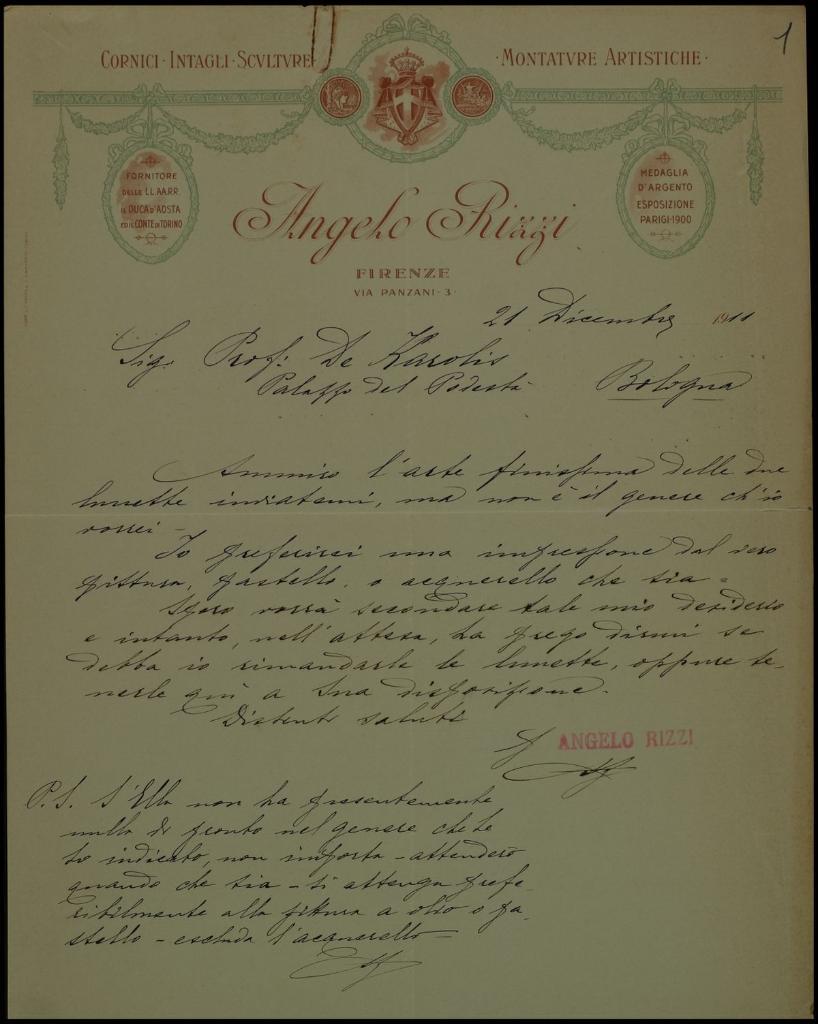 1
CORNICI · INTAGLI · SCVLTVRE
· MONTATVRE ARTISTICHE ·
FORNITORE
DELLE LL.AA.RR.
IL DUCA D'AOSTA
ED IL CONTE DI TORINO
MEDAGLIA
D'ARGENTO
ESPOSIZIONE
PARIGI·1900
Angelo Rizzi
FIRENZE
VIA PANZANI·3·
21 Dicembre 1911
Sig. Prof: De Karolis
Palazzo del Podestà Bologna
Ammiro l'arte finissima delle due
lunette inviatemi, ma non è il genere ch'io
vorrei -
Io preferirei una impressione dal vero
pittura, pastello, o acquerello che sia -
Spero vorrà secondare tale mio desiderio
e intanto, nell'attesa, La prego dirmi se
debba io rimandarle le lunette, oppure te-
nerle qui a Sua disposizione.
Distinti saluti
ANGELO RIZZI
P.S. S'Ella non ha presentemente
nulla di pronto nel genere che Le
ho indicato, non importa - attenderò
quando che sia - si attenga prefe-
ribilmente alla pittura a olio o pa-
stello - escluda l'acquerello -